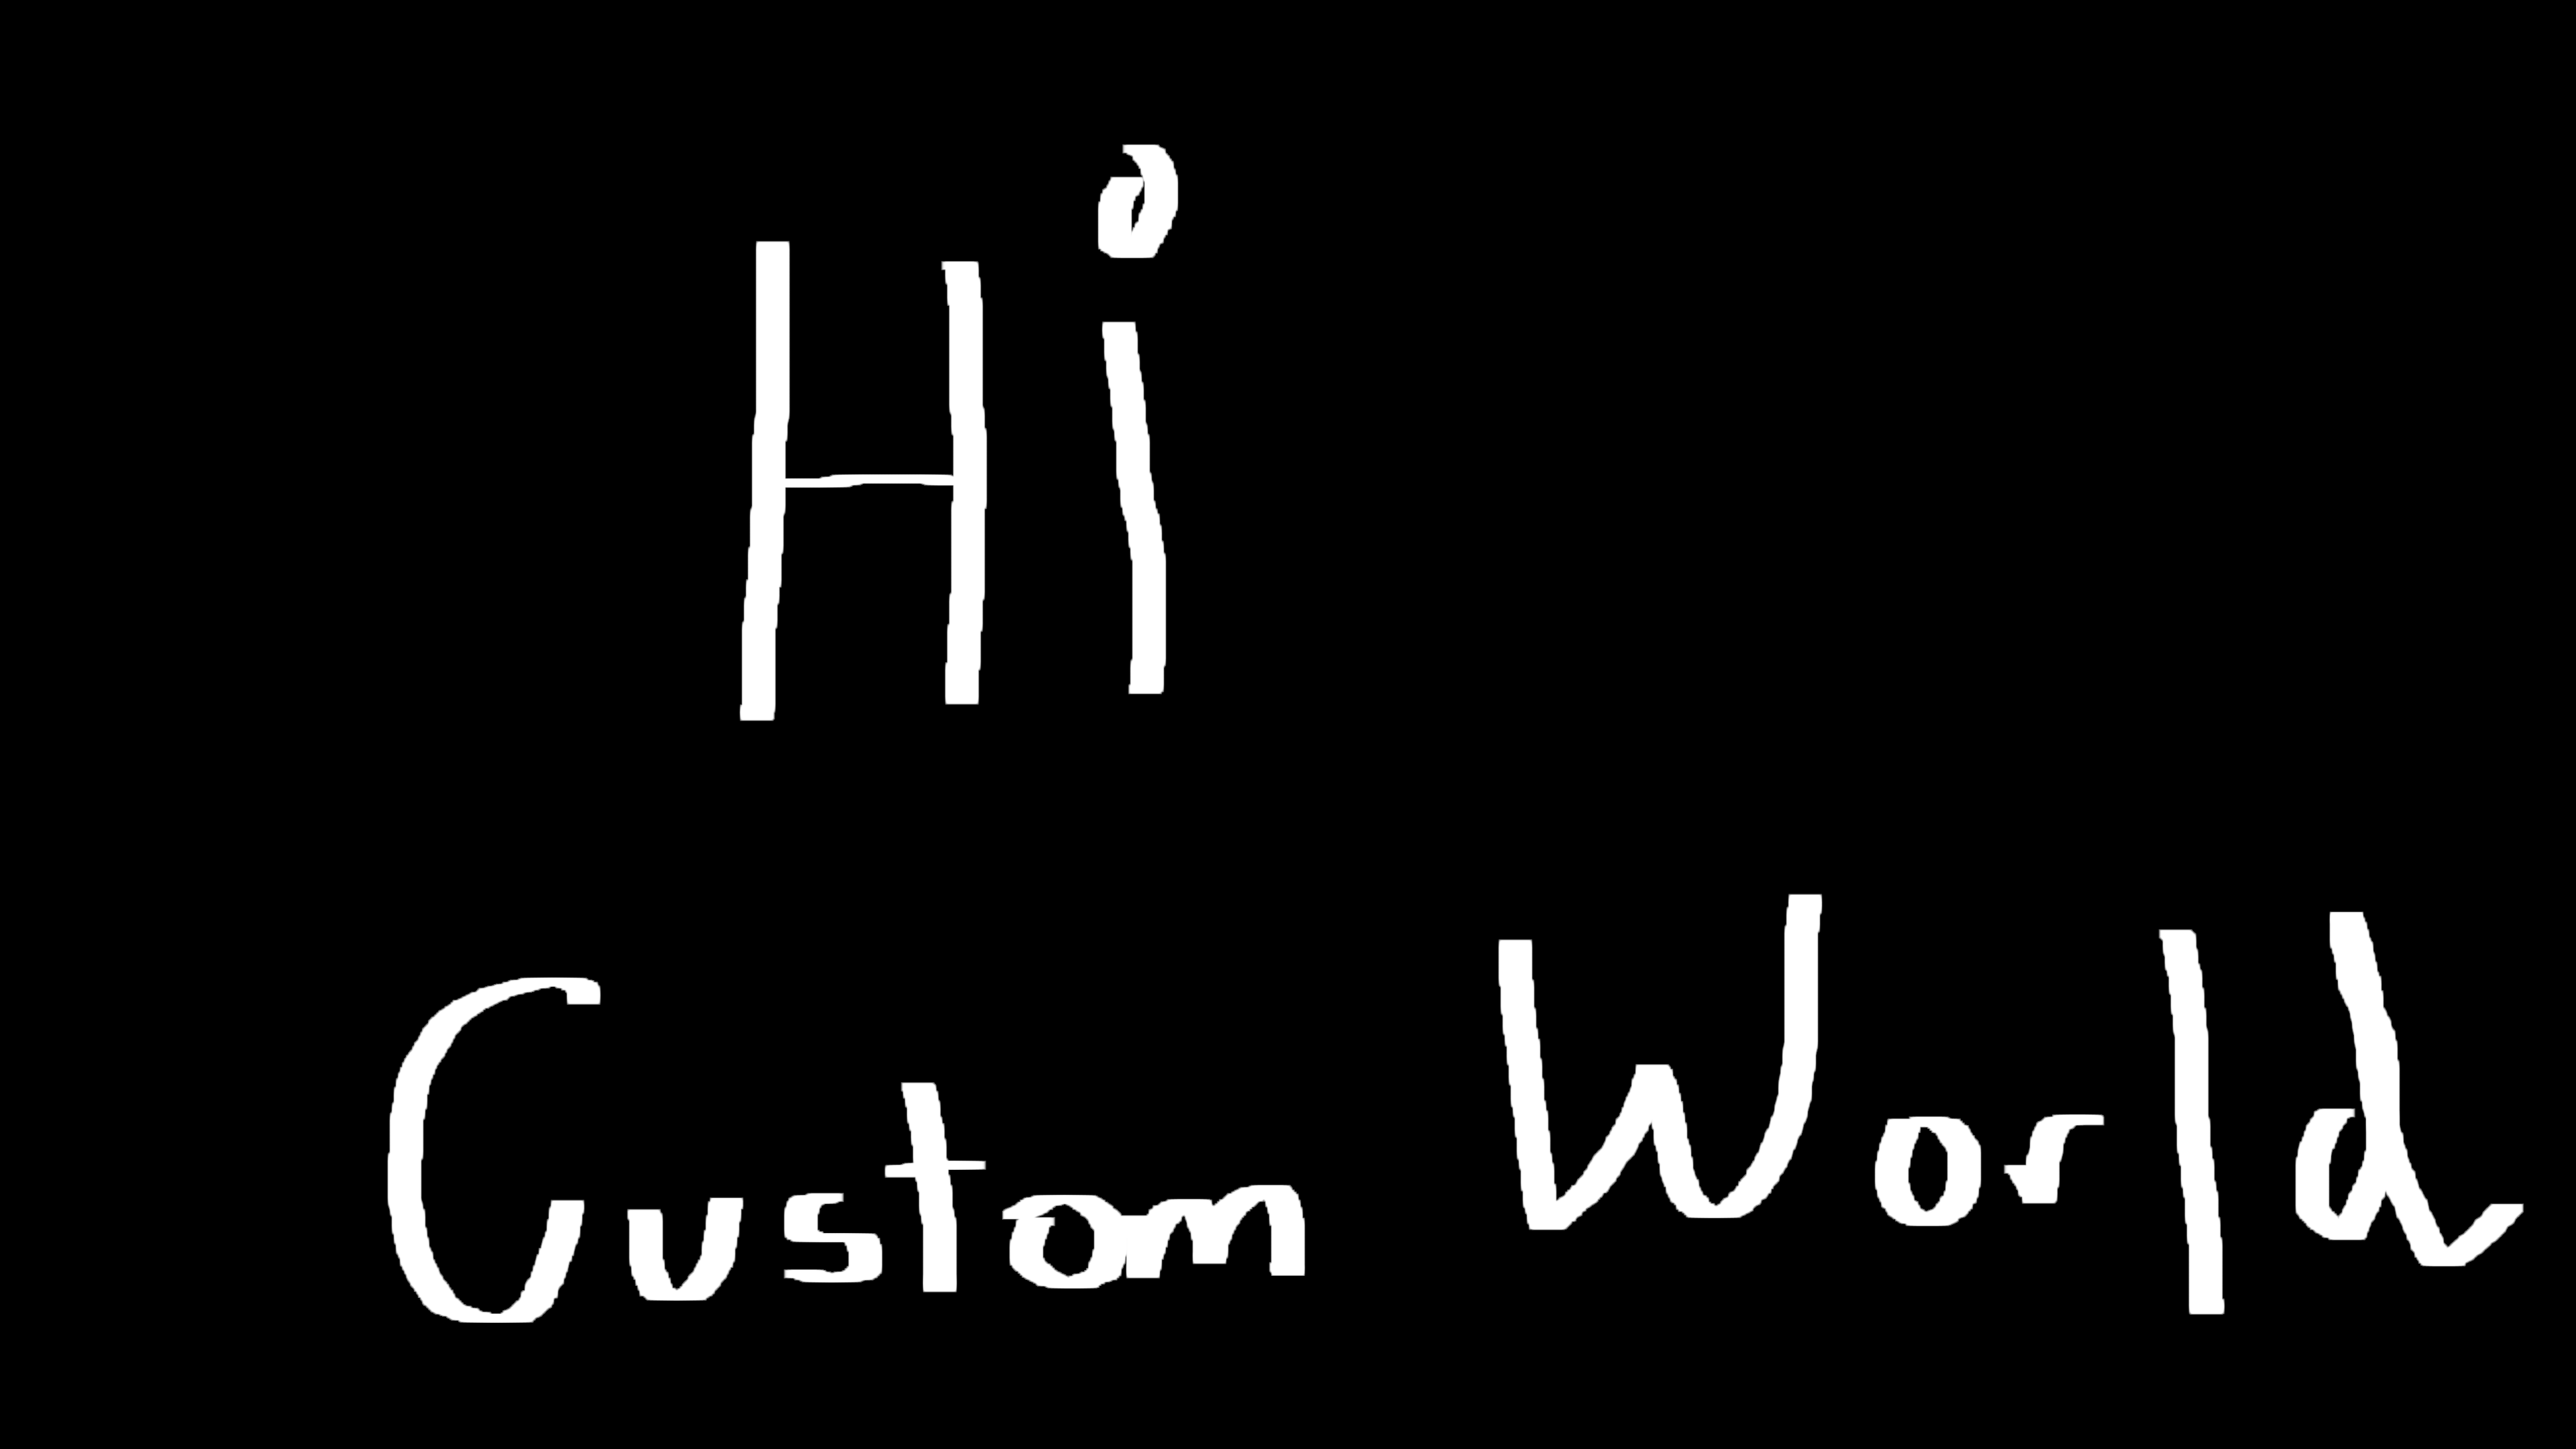 Hi
Custom World